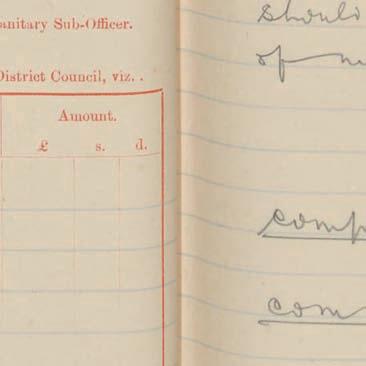 anitary Sub-Officer.
District Council, viz. .
Amount.
£ s. d.
should
of
comp
com